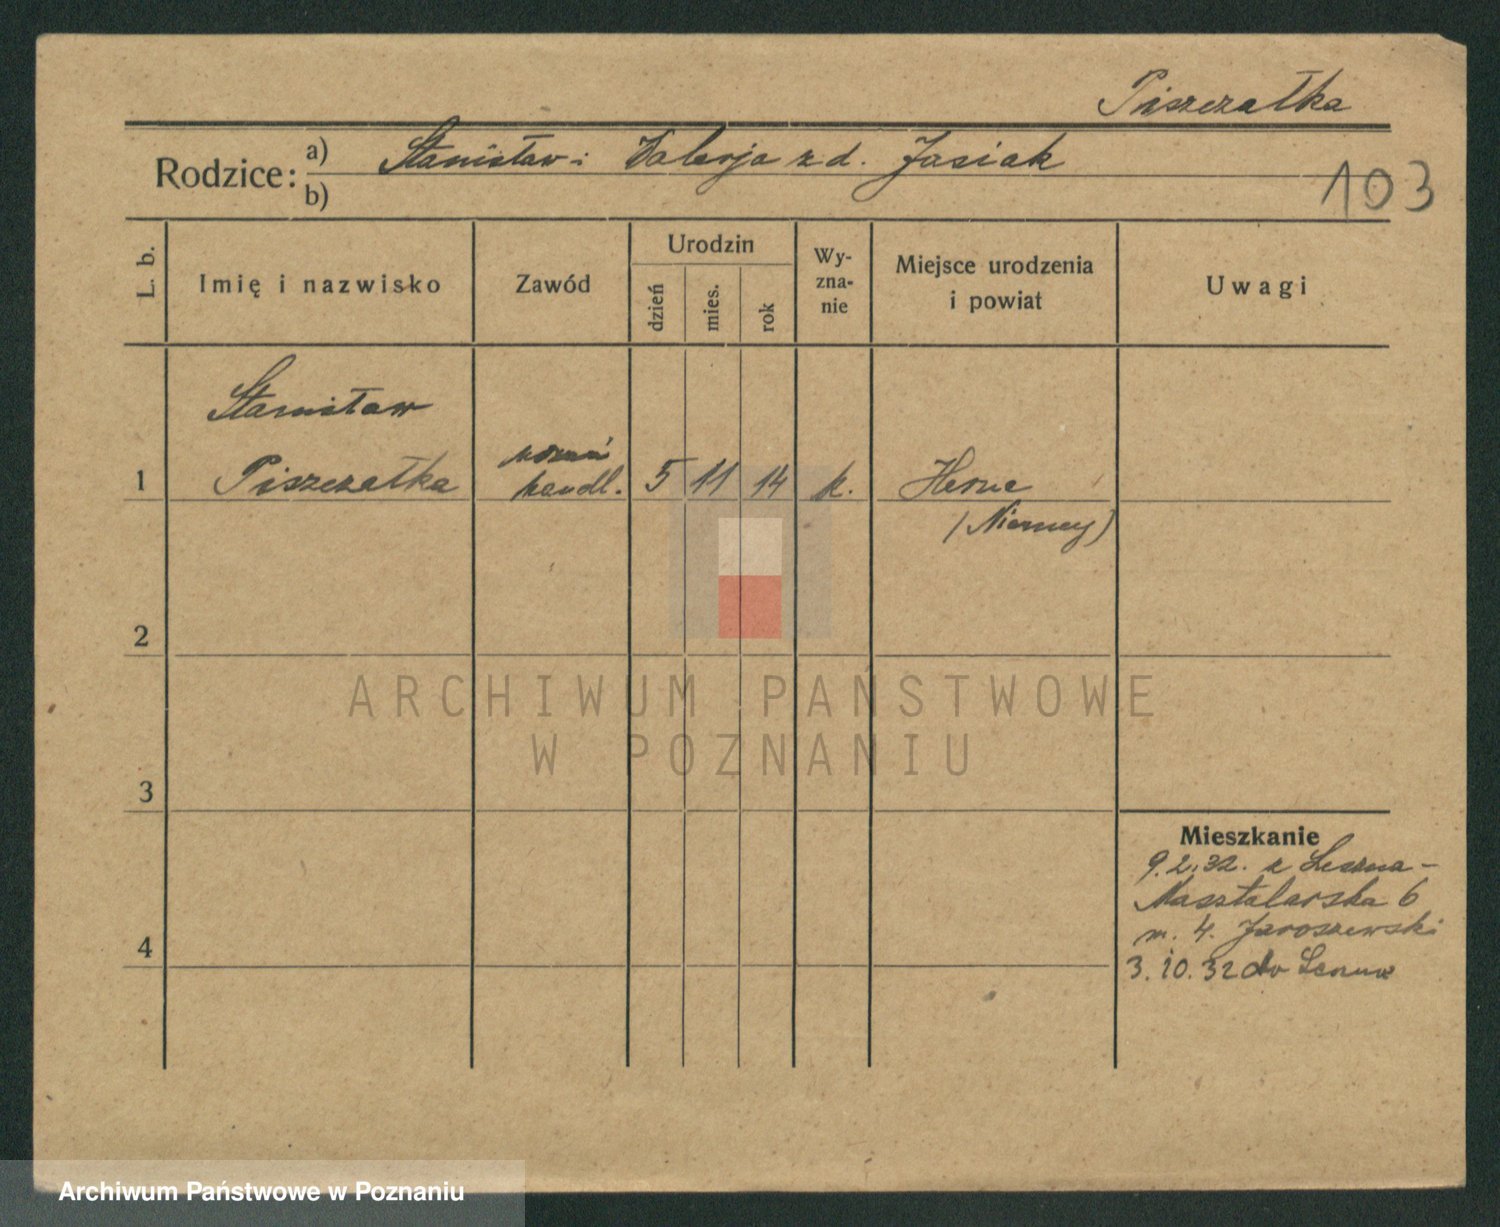 Piszczałka
Rodzice: a) Stanisław i Walerja z d. Jasiak
b)
103
L. b.
Imię i nazwisko
Zawód
Urodzin
dzień
mies.
rok
Wy-
zna-
nie
Miejsce urodzenia
i powiat
Uwagi
Stanisław
1 Piszczałka handl. 5 11 14 k. Herne
(Niemcy)
2
3
4
Mieszkanie
9.2.32. z Leszna -
Masztalarska 6
m. 4. Jaroszewski
3.10.32 do
ARCHIWUM PAŃSTWOWE
W POZNANIU
Archiwum Państwowe w Poznaniu